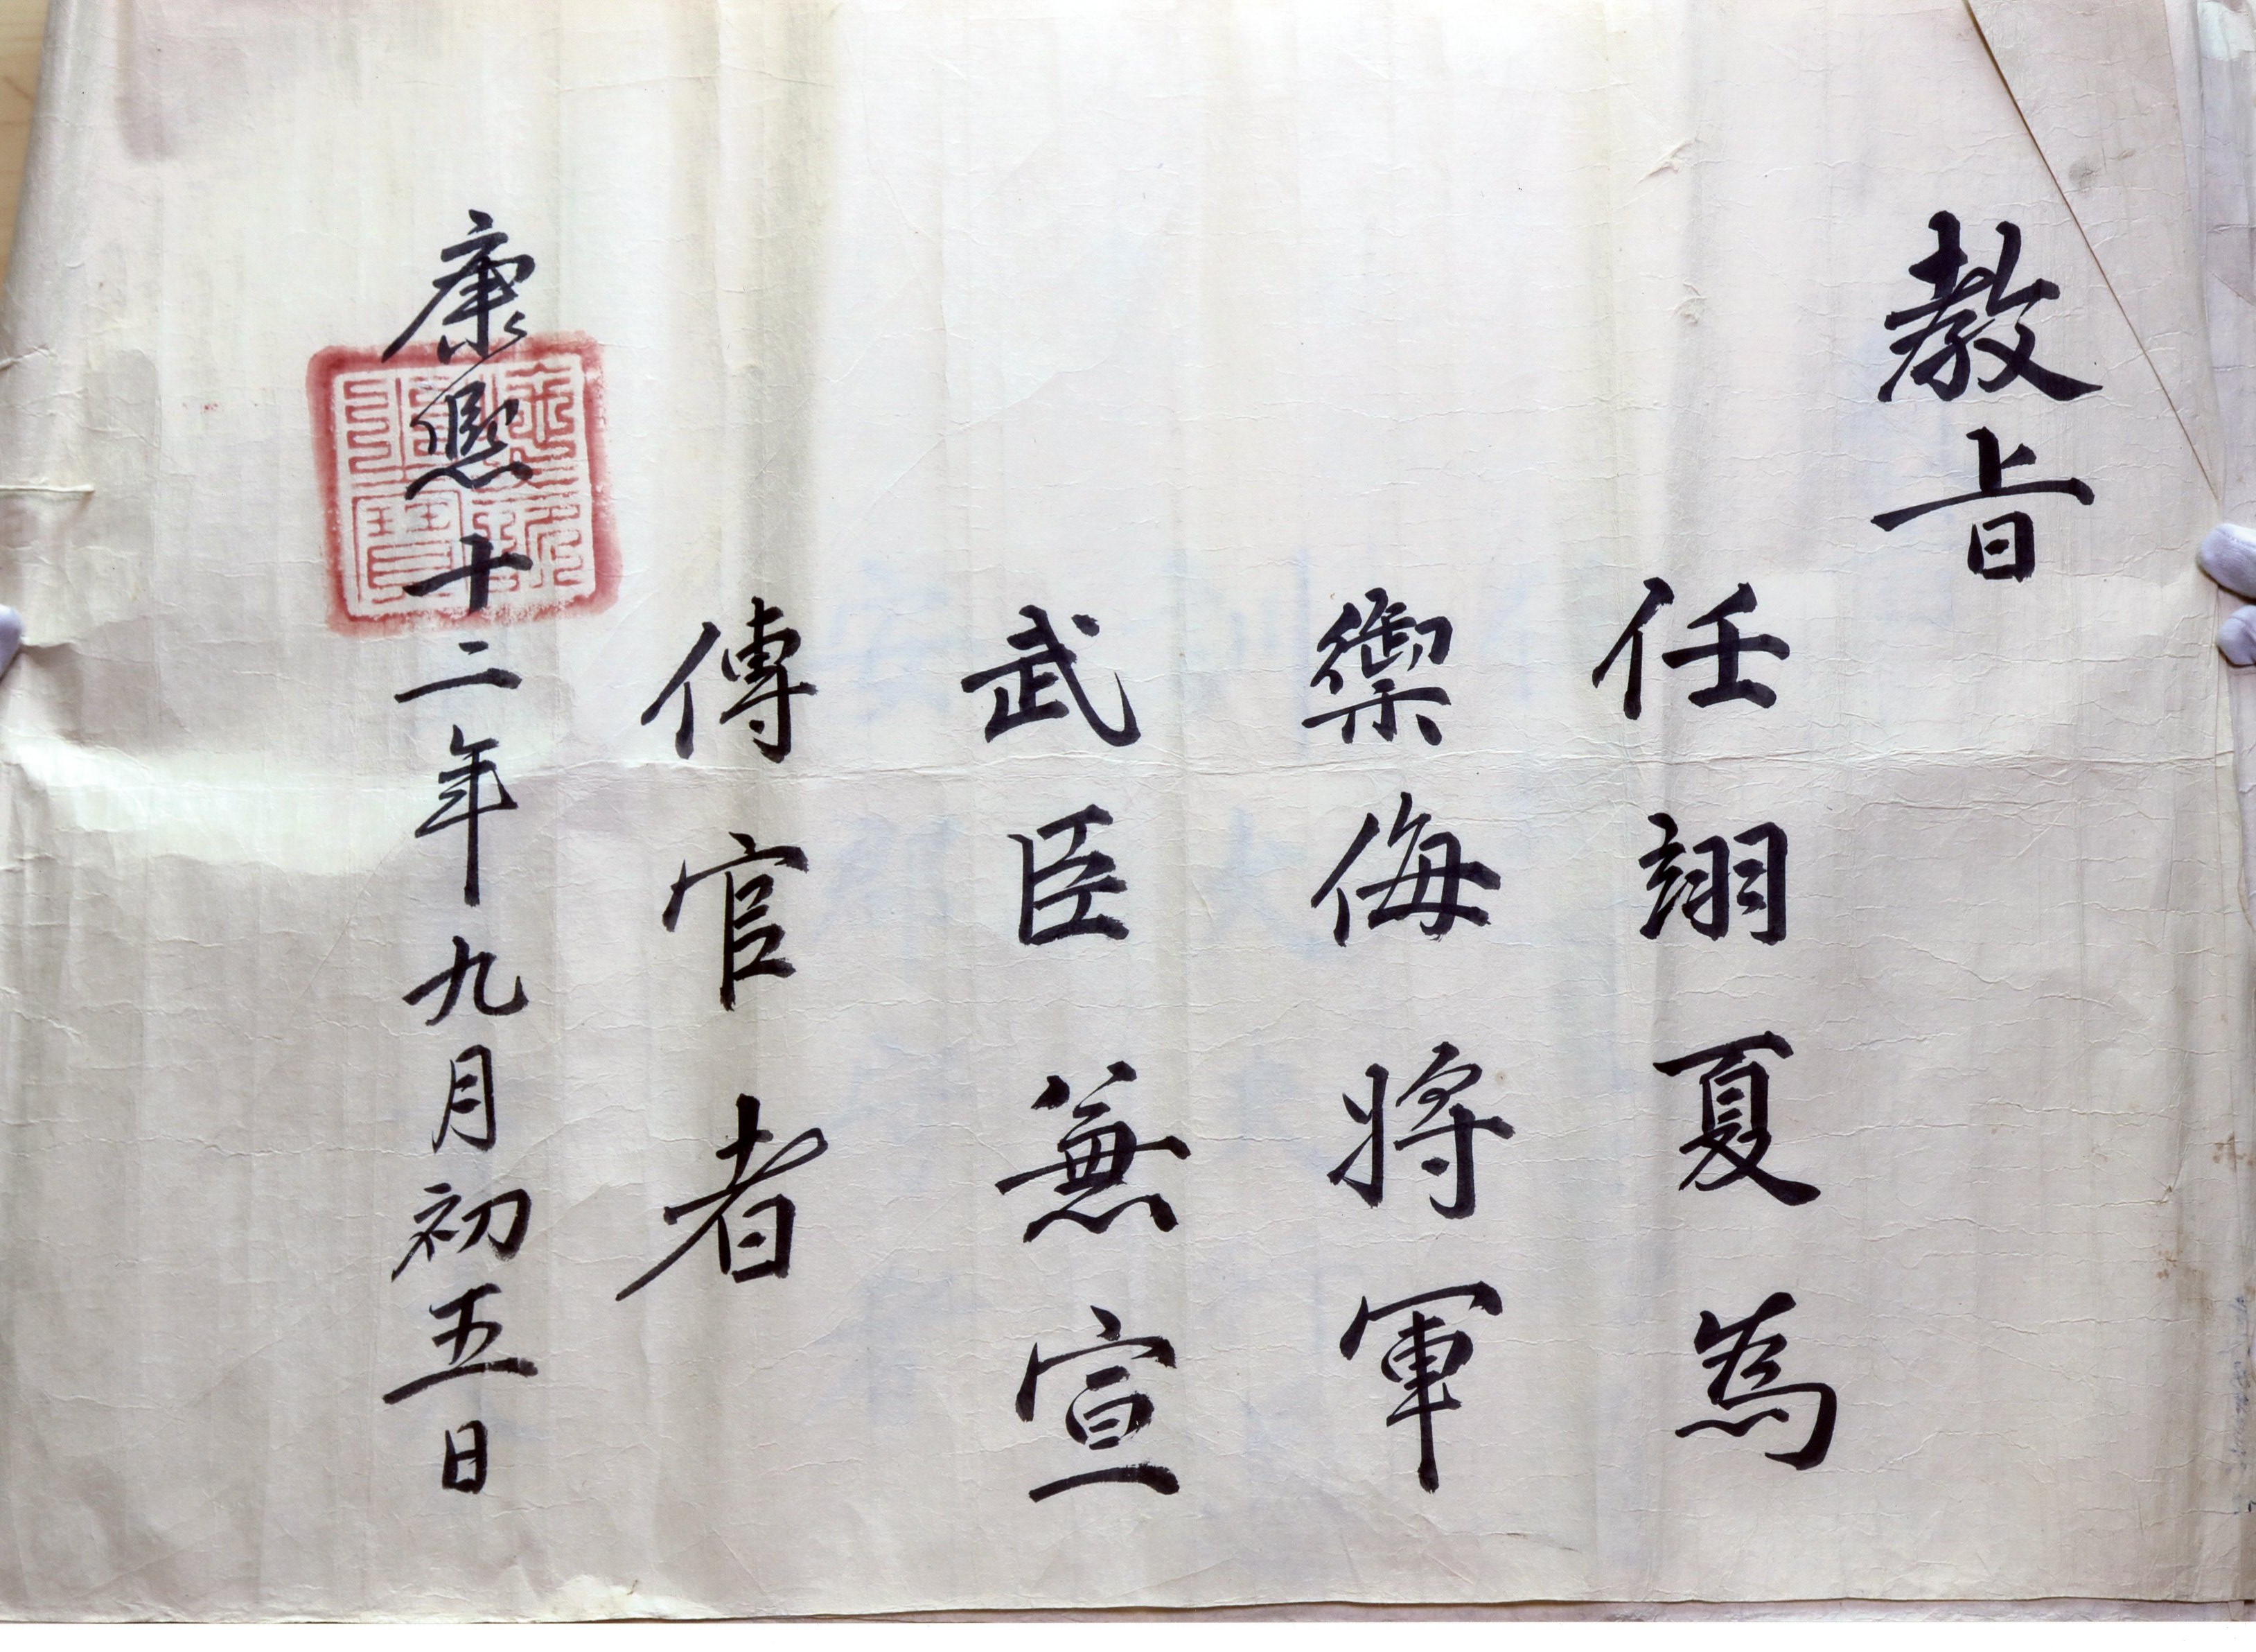 教旨
任翊夏為
禦侮將軍
武臣兼宣
傳官者
康熙十二年九月初五日